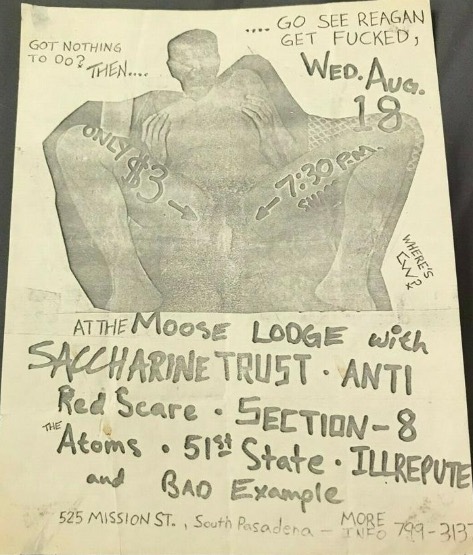 GOT NOTHING
TO DO? THEN....
.... GO SEE REAGAN
GET FUCKED,
WED. AUG.
18
ONLY $3
7:30 P.M.
WHERE'S
AT THE MOOSE LODGE with
SACCHARINE TRUST · ANTI
Red Scare · SECTION-8
THE Atoms · 51st State · ILLREPUTE
and BAD Example
525 MISSION ST., South Pasadena - MORE INFO 799-3137